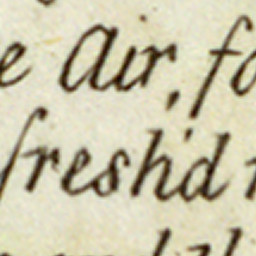 e Air, fo
fresh'd